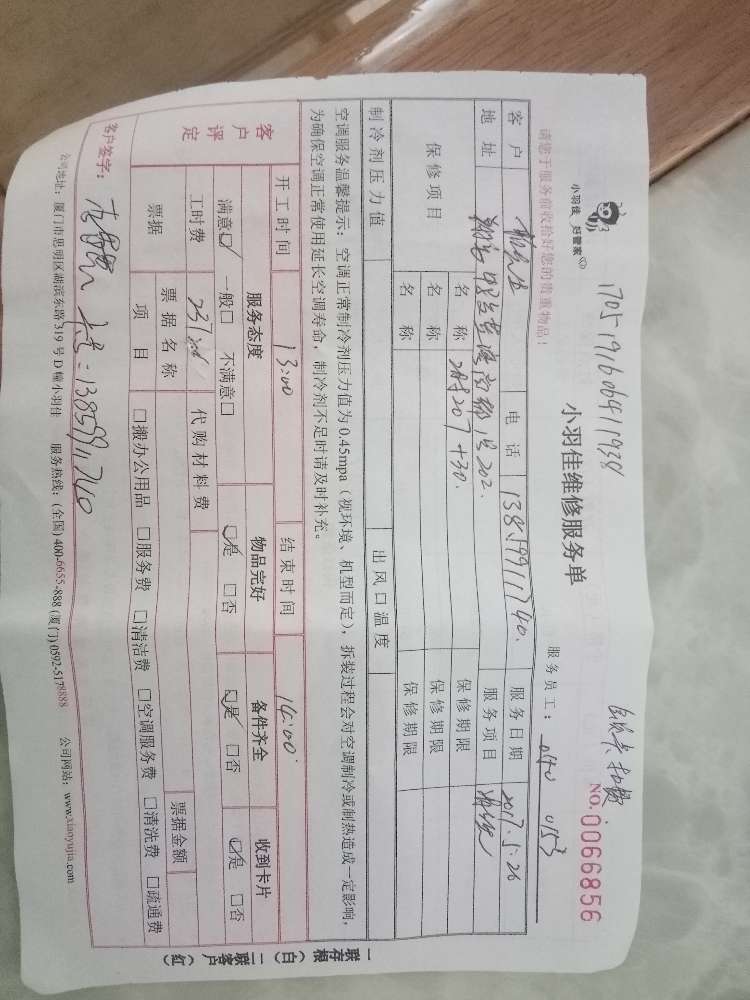 1705191606411938
小羽佳 好管家
小羽佳维修服务单
NO. 0066856
请您于服务前收拾好您的贵重物品!
服务员工: 040 0153
客户 电话 13859911740. 服务日期 2017.5.26
地址 202. 服务项目
保修项目 名称 207+30. 保修期限
名称 保修期限
名称 保修期限
制冷剂压力值 出风口温度
空调服务温馨提示: 空调正常制冷剂压力值为0.45mpa (视环境、机型而定), 拆装过程会对空调制冷或制热造成一定影响,
为确保空调正常使用延长空调寿命, 制冷剂不足时请及时补充。
开工时间 13:00 结束时间 14:00
客户评定 服务态度 物品完好 备件齐全 收到卡片
满意☑ 一般□ 不满意□ ☑是 □否 ☑是 □否 ☑是 □否
工时费 237 代购材料费
票据 票据名称 票据金额
项目 □搬办公用品 □服务费 □清洁费 □空调服务费 □清洗费 □疏通费
客户签字: 13859911740
公司地址: 厦门市思明区湖滨东路319号D幢小羽佳 服务热线: (全国) 400-6655-888 (厦门) 0592-5178888 公司网站: www.xiaoyujia.com
一联存根(白) 二联客户(红)